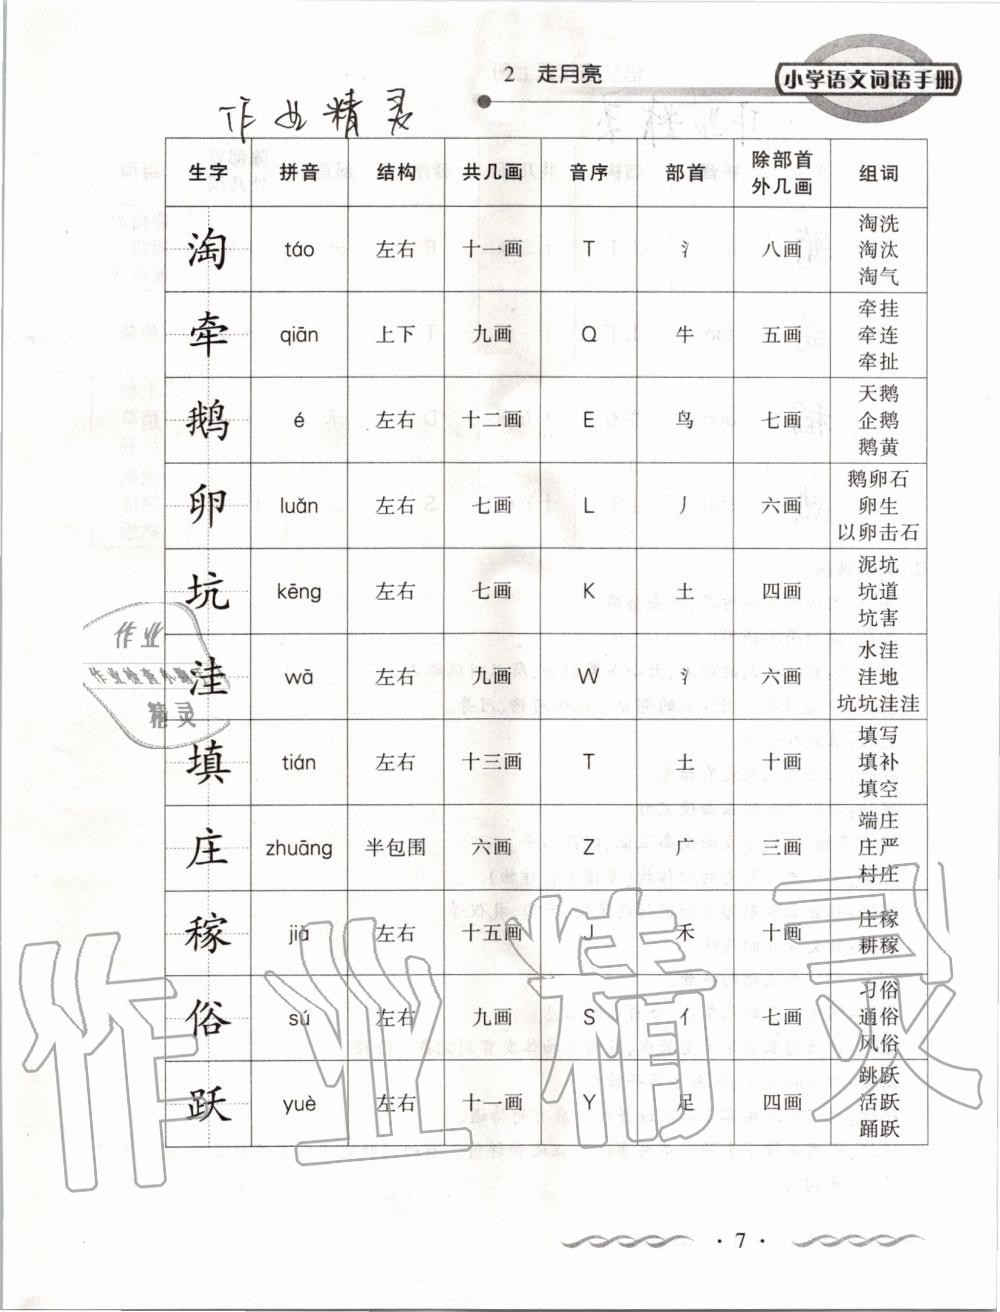 2 走月亮
小学语文词语手册
作业精灵
生字 拼音 结构 共几画 音序 部首 除部首外几画 组词
淘 táo 左右 十一画 T 氵 八画 淘洗 淘汰 淘气
牵 qiān 上下 九画 Q 牛 五画 牵挂 牵连 牵扯
鹅 é 左右 十二画 E 鸟 七画 天鹅 企鹅 鹅黄
卵 luǎn 左右 七画 L 丿 六画 鹅卵石 卵生 以卵击石
坑 kēng 左右 七画 K 土 四画 泥坑 坑道 坑害
洼 wā 左右 九画 W 氵 六画 水洼 洼地 坑坑洼洼
填 tián 左右 十三画 T 土 十画 填写 填补 填空
庄 zhuāng 半包围 六画 Z 广 三画 端庄 庄严 村庄
稼 jià 左右 十五画 J 禾 十画 庄稼 耕稼
俗 sú 左右 九画 S 亻 七画 习俗 通俗 风俗
跃 yuè 左右 十一画 Y 足 四画 跳跃 活跃 踊跃
作业
作业检查小帮手
精灵
作业精灵
· 7 ·